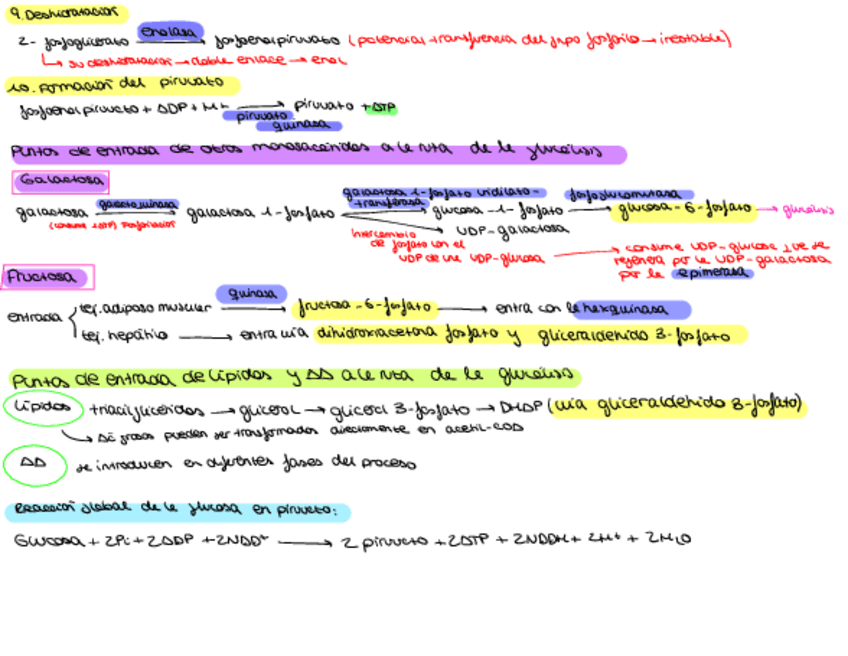 9. Deshidratación
2- fosfoglicerato enolasa fosfoenolpiruvato (potencial transferencia del grupo fosforilo → inestable)
su deshidratación → doble enlace → enol
10. Formación del piruvato
fosfoenolpiruvato + ADP + H+ → piruvato + ATP
piruvato quinasa
Puntos de entrada de otros monosacáridos a la ruta de la glucólisis
Galactosa
galactosa galactoquinasa galactosa 1-fosfato galactosa 1-fosfato uridilato-transferasa glucosa-1-fosfato fosfoglucomutasa glucosa-6-fosfato → glucólisis
(consume 1 ATP) fosforilación
UDP-galactosa
intercambio de fosfato con el UDP de una UDP-glucosa → consume UDP-glucosa que se regenera por la UDP-galactosa por la epimerasa
Fructosa
entrada
tej. adiposo muscular quinasa fructosa-6-fosfato → entra con la hexquinasa
tej. hepático → entra vía dihidroxiacetona fosfato y gliceraldehido 3-fosfato
Puntos de entrada de lípidos y AA a la ruta de la glucólisis
Lípidos triacilglicéridos → glicerol → glicerol 3-fosfato → DHAP (vía gliceraldehido 3-fosfato)
Ác grasos pueden ser transformados directamente en acetil-COA
AA se introducen en diferentes fases del proceso
Reacción global de la glucosa en piruvato:
Glucosa + 2Pi + 2ADP + 2NAD+ → 2 piruvato + 2ATP + 2NADH + 2H+ + 2H2O